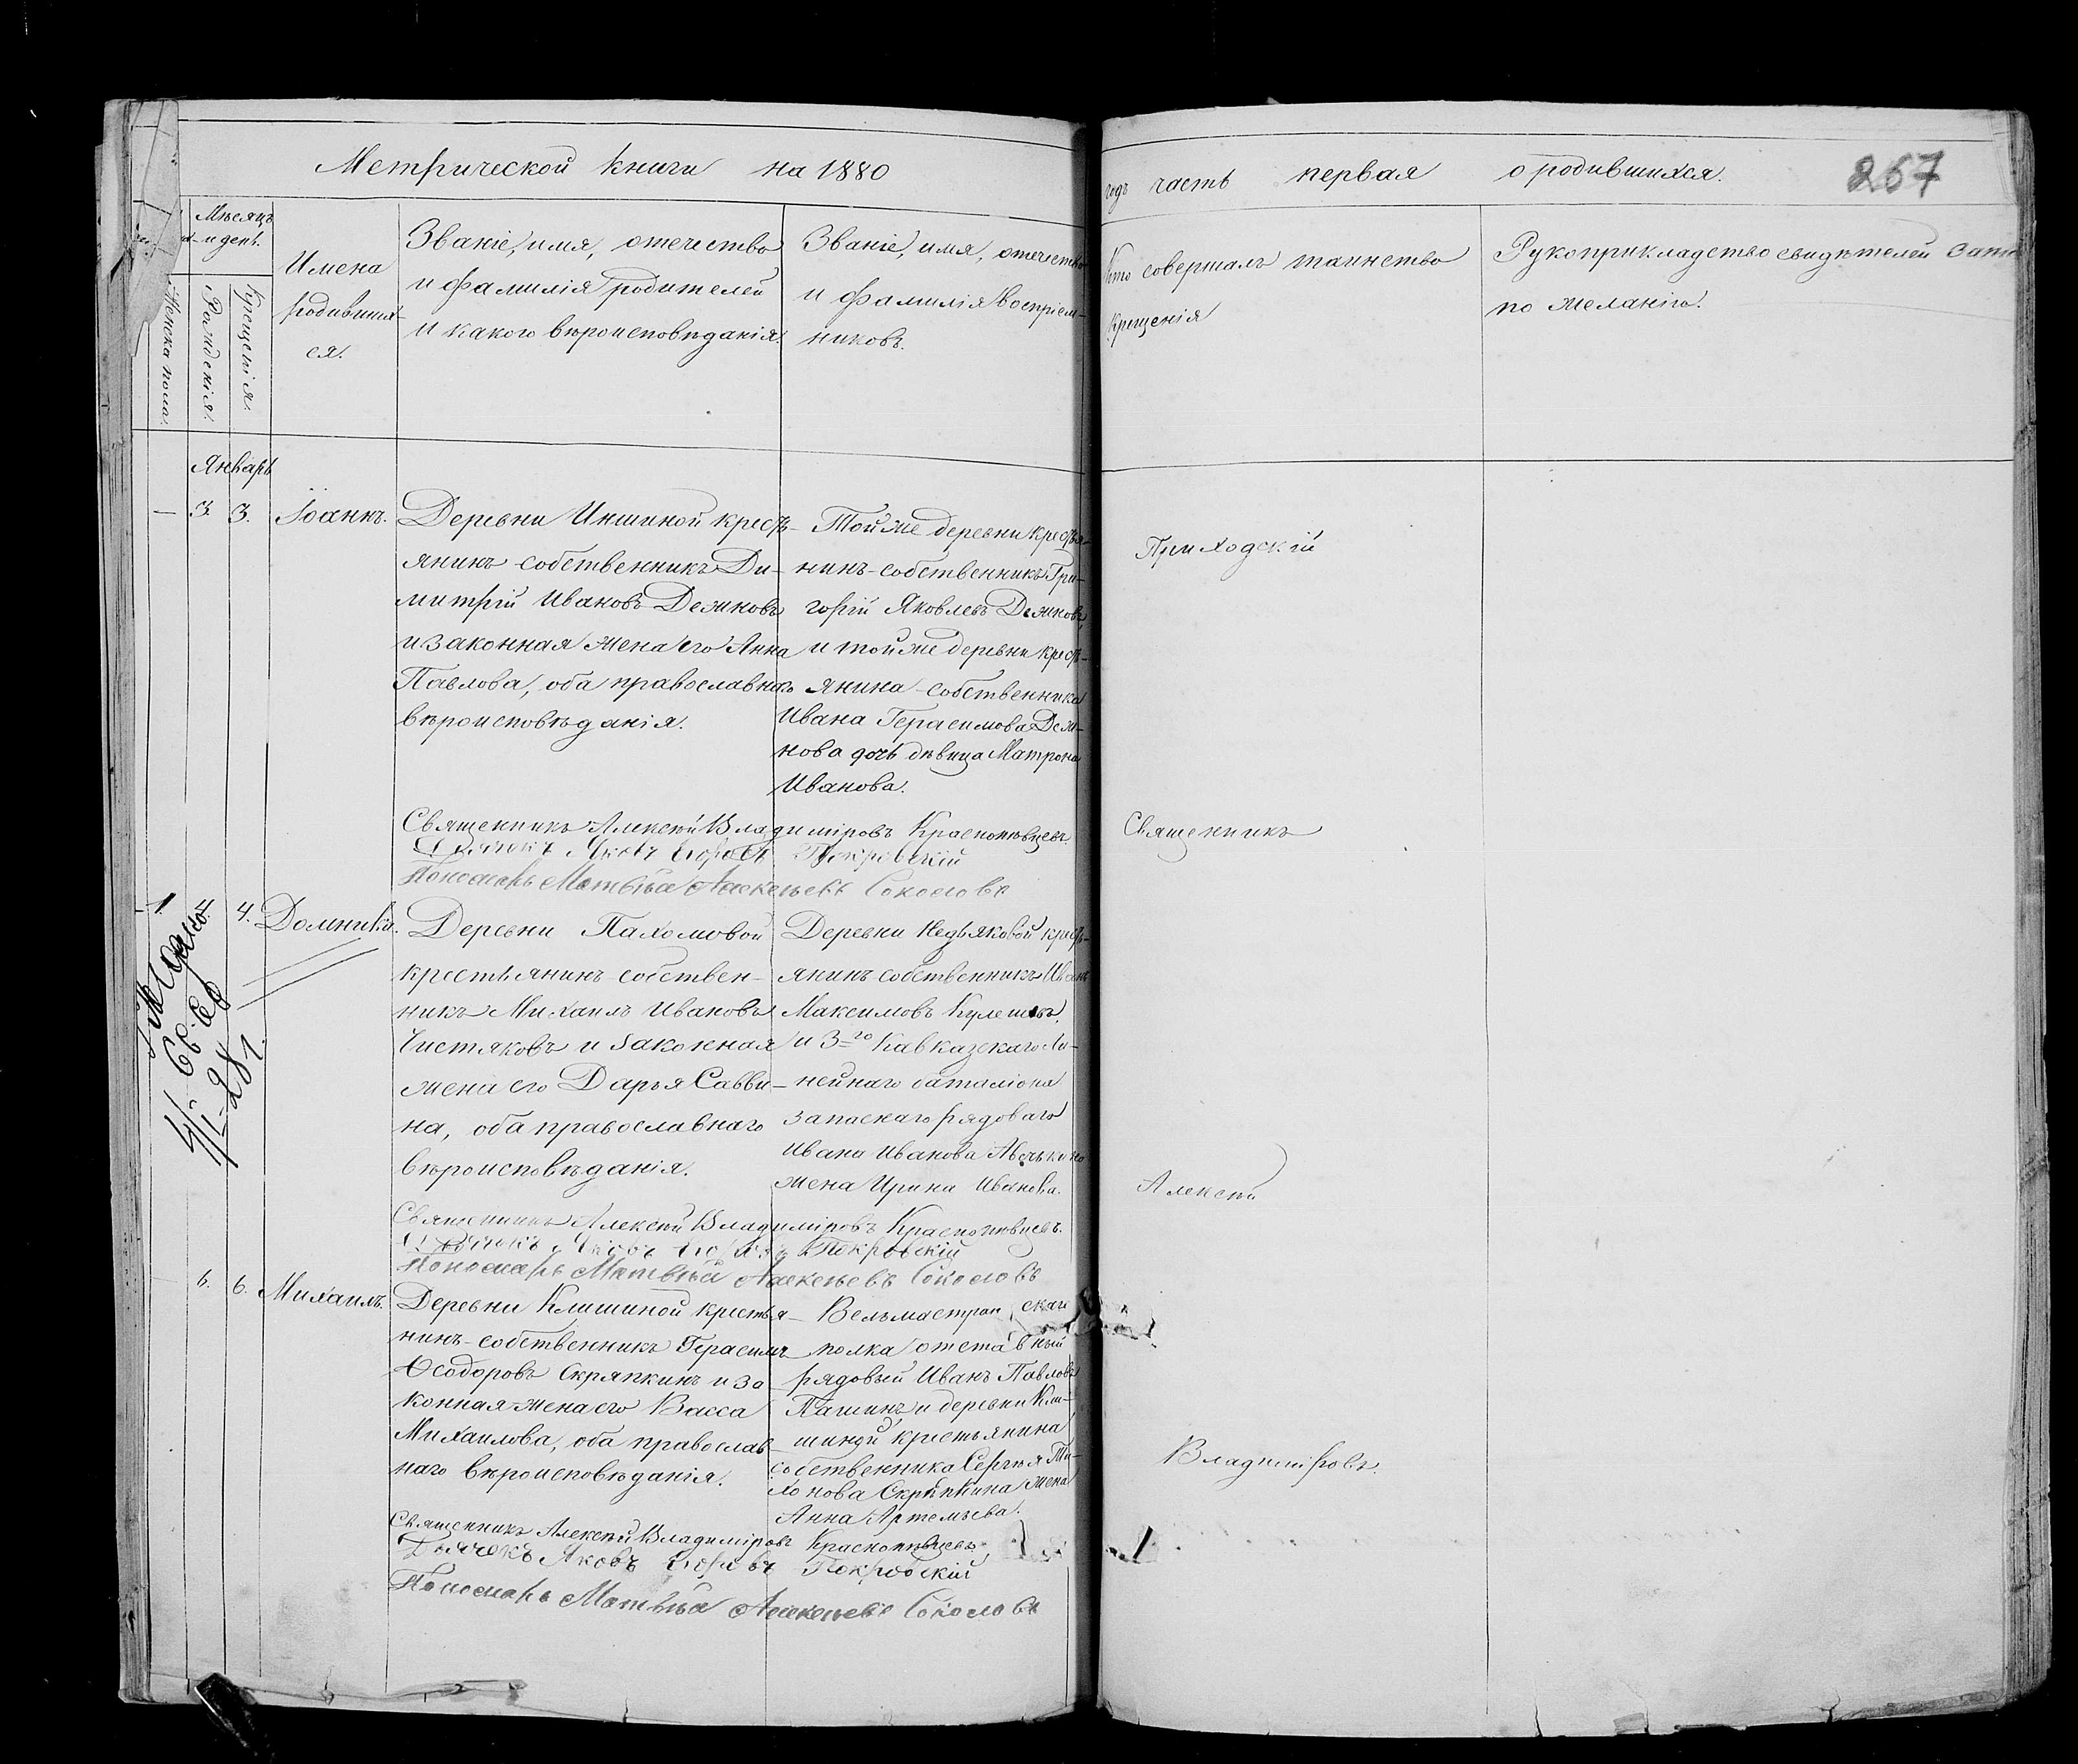 Метрической книги на 1880
годъ часть первая о родившихся.
267
Мѣсяцъ
и день.
Женска пола.
Рожденія.
Крещенія.
Имена
родивших-
ся.
Званіе, имя, отечество
и фамилія родителей
и какого вѣроисповѣданія.
Званіе, имя, отечество
и фамилія воспріем-
никовъ.
Кто совершалъ таинство
крещенія
Рукоприкладство свидѣтелей
по желанію.
Январь
— 3. 3. Іоаннъ.
Деревни Икшиной крест-
янинъ собственникъ Ди-
митрій Ивановъ Дежновъ
и законная жена его Анна
Павлова, оба православнаго
вѣроисповѣданія.
Той же деревни крестья-
нинъ-собственникъ Гри-
горій Яковлевъ Дежновъ,
и той же деревни крест-
янина собственника
Ивана Герасимова Деж-
нова дочь дѣвица Матрона
Иванова.
Священникъ Алексѣй Владиміровъ Краснопѣвцевъ.
Дьячекъ Яковъ Покровскій
Пономарь Матвѣй Алексѣевъ Соколовъ
1. 4. 4. Домникія.
Деревни Пахомовой
крестьянинъ собствен-
никъ Михаилъ Ивановъ
Чистяковъ и законная
жена его Дарья Савви-
на, оба православнаго
вѣроисповѣданія.
Деревни Недѣяковой крест-
янинъ собственникъ Иванъ
Максимовъ Кулешовъ,
и 3-го Кавказскаго Ли-
нейнаго баталіона
запаснаго рядоваго
Ивана Иванова
жена Ирина Иванова.
4/I-28 г.
Священникъ Алексѣй Владиміровъ Краснопѣвцевъ.
Дьячекъ Яковъ Покровскій
Пономарь Матвѣй Алексѣевъ Соколовъ
6. 6. Михаилъ.
Деревни Климиной крестья-
нинъ-собственникъ Герасимъ
Ѳеодоровъ Скряпкинъ и за
конная жена его Васса
Михаилова, оба православ-
наго вѣроисповѣданія.
Вельмастран скаго
полка отставный
рядовый Иванъ Павловъ
Пашинъ и деревни Кли-
миной крестьянина
собственника Сергѣя Ти-
хонова Скрѣпкина жена
Анна Артемьева.
Священникъ Алексѣй Владиміровъ Краснопѣвцевъ
Дьячекъ Яковъ Покровскій
Пономарь Матвѣй Алексѣевъ Соколовъ
Приходскій
Священникъ
Алексѣй
Владиміровъ